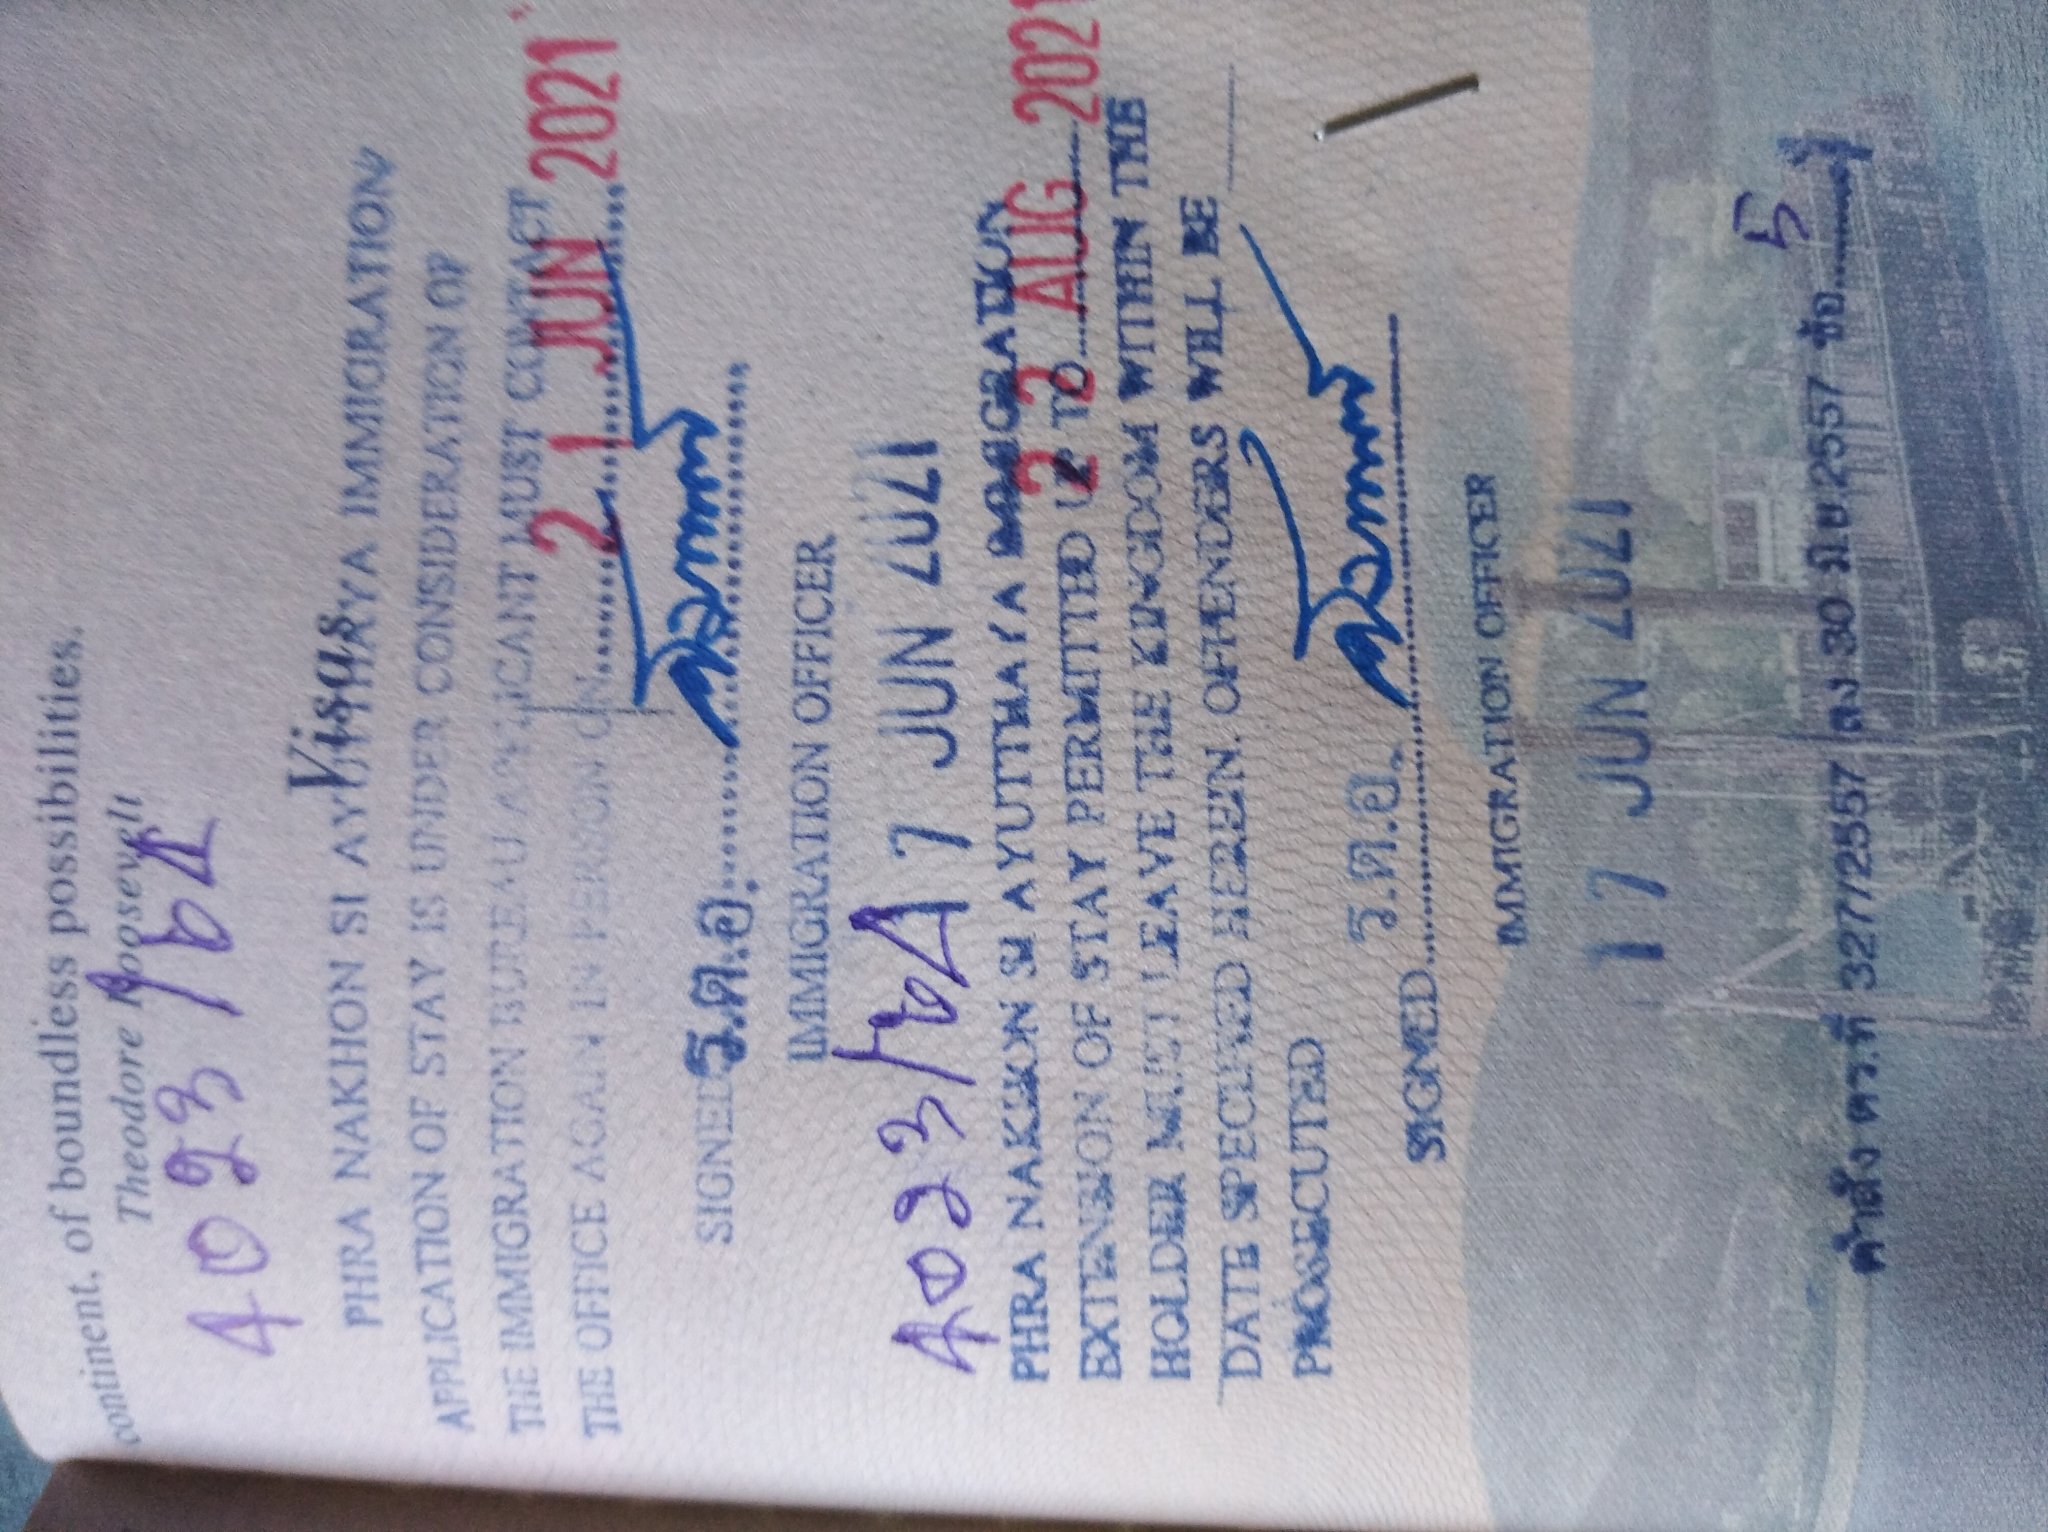 continent, of boundless possibilities.
Theodore Roosevelt
4023/64
Visas
PHRA NAKHON SI AYUTTHAYA IMMIGRATION
APPLICATION OF STAY IS UNDER CONSIDERATION OF
THE IMMIGRATION BUREAU APPLICANT MUST CONTACT
THE OFFICE AGAIN IN PERSON ON 21 JUN 2021
SIGNED ร.ต.อ.
IMMIGRATION OFFICER
4023/64 17 JUN 2021
PHRA NAKHON SI AYUTTHAYA IMMIGRATION
EXTENSION OF STAY PERMITTED UP TO 22 AUG 2021
HOLDER MUST LEAVE THE KINGDOM WITHIN THE
DATE SPECIFIED HEREIN. OFFENDERS WILL BE
PROSECUTED
SIGNED ร.ต.อ.
IMMIGRATION OFFICER
17 JUN 2021
คำสั่ง ตร.ที่ 327/2557 ลง 30 มิ.ย.2557 ข้อ